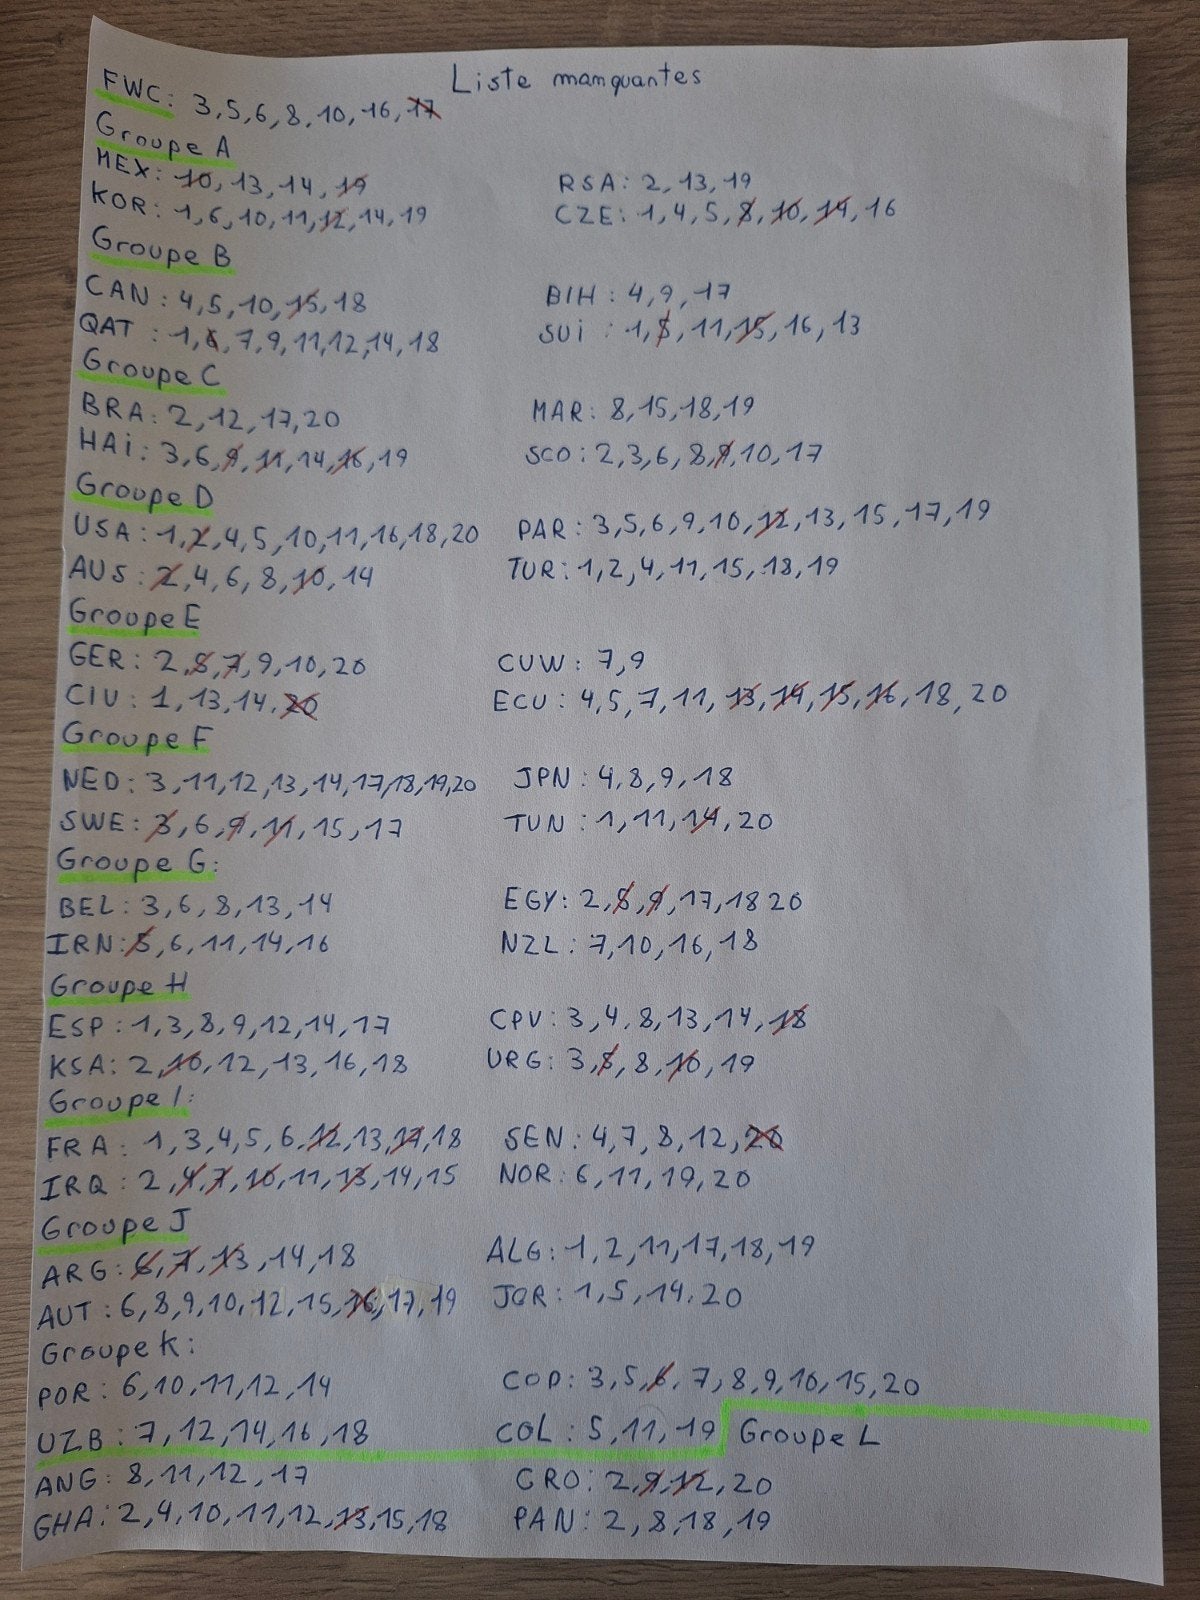 Liste manquantes
FWC: 3,5,6,8,10,16,17
Groupe A
MEX: 10,13,14,19
RSA: 2,13,19
KOR: 1,6,10,11,12,14,19
CZE: 1,4,5,8,10,14,16
Groupe B
CAN: 4,5,10,15,18
BIH: 4,9,17
QAT: 1,6,7,9,11,12,14,18
SUi: 1,5,11,15,16,13
Groupe C
BRA: 2,12,17,20
MAR: 8,15,18,19
HAi: 3,6,9,11,14,16,19
SCO: 2,3,6,8,9,10,17
Groupe D
USA: 1,2,4,5,10,11,16,18,20
PAR: 3,5,6,9,10,12,13,15,17,19
AUS: 2,4,6,8,10,14
TUR: 1,2,4,11,15,18,19
Groupe E
GER: 2,5,7,9,10,20
CUW: 7,9
CIU: 1,13,14,20
ECU: 4,5,7,11,13,14,15,16,18,20
Groupe F
NED: 3,11,12,13,14,17,18,19,20
JPN: 4,8,9,18
SWE: 3,6,9,11,15,17
TUN: 1,11,14,20
Groupe G:
BEL: 3,6,8,13,14
EGY: 2,5,9,17,18 20
IRN: 5,6,11,14,16
NZL: 7,10,16,18
Groupe H
ESP: 1,3,8,9,12,14,17
CPV: 3,4,8,13,14,18
KSA: 2,10,12,13,16,18
URG: 3,5,8,10,19
Groupe I:
FRA: 1,3,4,5,6,12,13,17,18
SEN: 4,7,8,12,20
IRQ: 2,4,7,10,11,13,14,15
NOR: 6,11,19,20
Groupe J
ARG: 6,7,13,14,18
ALG: 1,2,11,17,18,19
AUT: 6,8,9,10,12,15,16,17,19
JOR: 1,5,14,20
Groupe K:
POR: 6,10,11,12,14
COD: 3,5,6,7,8,9,10,15,20
UZB: 7,12,14,16,18
COL: 5,11,19
Groupe L
ANG: 8,11,12,17
CRO: 2,9,12,20
GHA: 2,4,10,11,12,13,15,18
PAN: 2,8,18,19